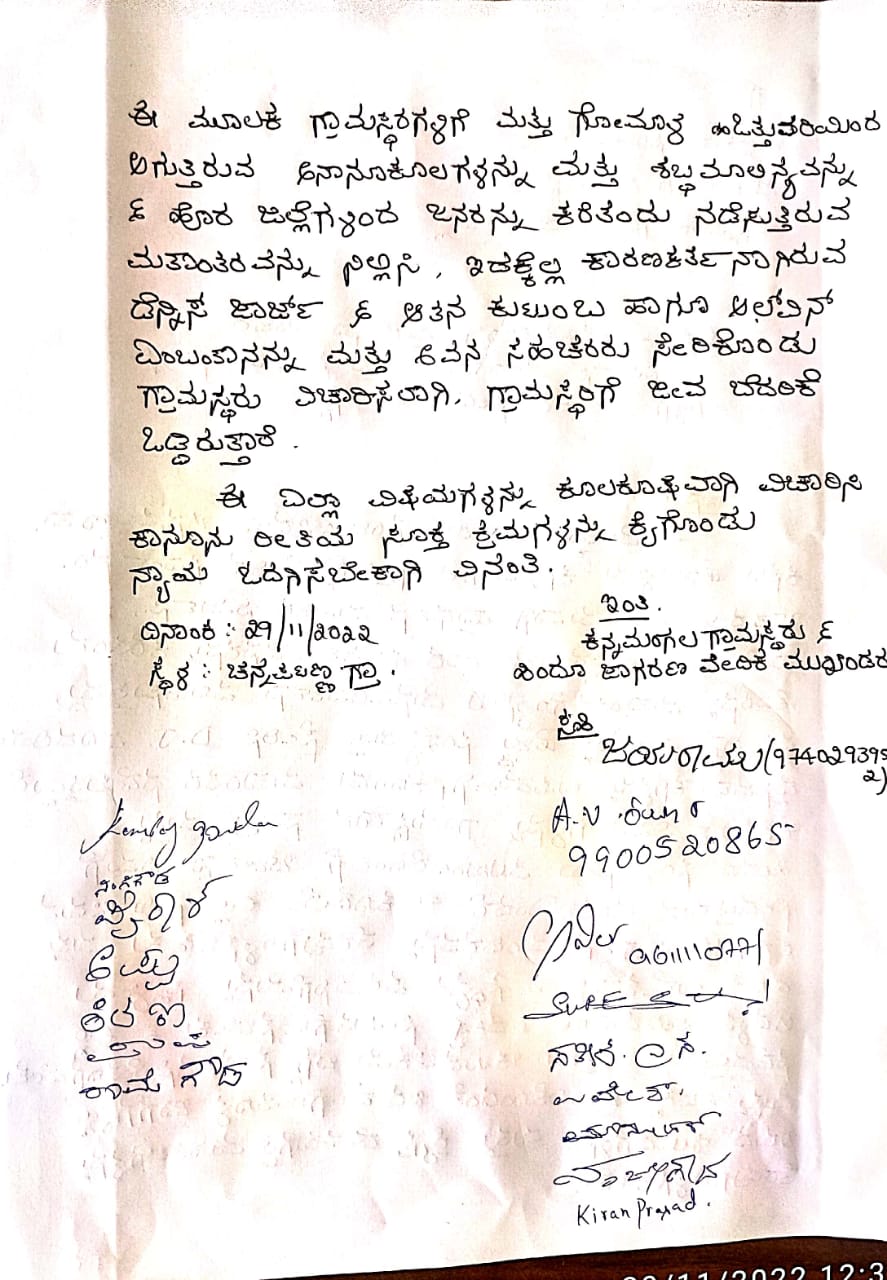 ಈ ಮೂಲಕ ಗ್ರಾಮಸ್ಥರಗಳಿಗೆ ಮತ್ತು ಗೋಮಾಳ ಒತ್ತುವರಿಯಿಂದ
ಆಗುತ್ತಿರುವ ಅನಾನೂಕೂಲಗಳನ್ನು ಮತ್ತು ಶಬ್ಧಮಾಲಿನ್ಯವನ್ನು
& ಹೊರ ಜಿಲ್ಲೆಗಳಿಂದ ಜನರನ್ನು ಕರಿತಂದು ನಡೆಸುತ್ತಿರುವ
ಮತಾಂತರವನ್ನು ನಿಲ್ಲಿಸಿ, ಇದಕ್ಕೆಲ್ಲ ಕಾರಣಕರ್ತನಾಗಿರುವ
ಡೆನ್ನಿಸ ಜಾರ್ಜ್ & ಆತನ ಕುಟುಂಬ ಹಾಗೂ ಆಲ್ವಿನ್
ಎಂಬಂತಾನನ್ನು ಮತ್ತು ಅವನ ಸಹಚರರು ಸೇರಿಕೊಂಡು
ಗ್ರಾಮಸ್ಥರು ವಿಚಾರಿಸಲಾಗಿ, ಗ್ರಾಮಸ್ಥರಿಗೆ ಜೀವ ಬೆದರಿಕೆ
ಒಡ್ಡಿರುತ್ತಾರೆ.
ಈ ಎಲ್ಲಾ ವಿಷಯಗಳನ್ನು ಕೂಲಕೂಷವಾಗಿ ವಿಚಾರಿಸಿ
ಕಾನೂನು ರೀತಿಯ ಸೂಕ್ತ ಕ್ರಮಗಳನ್ನು ಕೈಗೊಂಡು
ನ್ಯಾಯ ಒದಗಿಸಬೇಕಾಗಿ ವಿನಂತಿ.
ಇಂತಿ.
ದಿನಾಂಕ : 29/11/2022
ಕನ್ನಮಂಗಲ ಗ್ರಾಮಸ್ಥರು &
ಸ್ಥಳ : ಚನ್ನಪಟ್ಟಣ್ಣ ಗ್ರಾ.
ಹಿಂದೂ ಜಾಗರಣ ವೇದಿಕೆ ಮುಖಂಡರ
ಜಯರಾಮು (9740293952)
A.V
9900520865
9611110771
ನಿಂಗೇಗೌಡ
ಅಪ್ಪು
ಕಿರಣ
ರಾಮೇಗೌಡ
Kiran Prasad.
29/11/2022 12:3